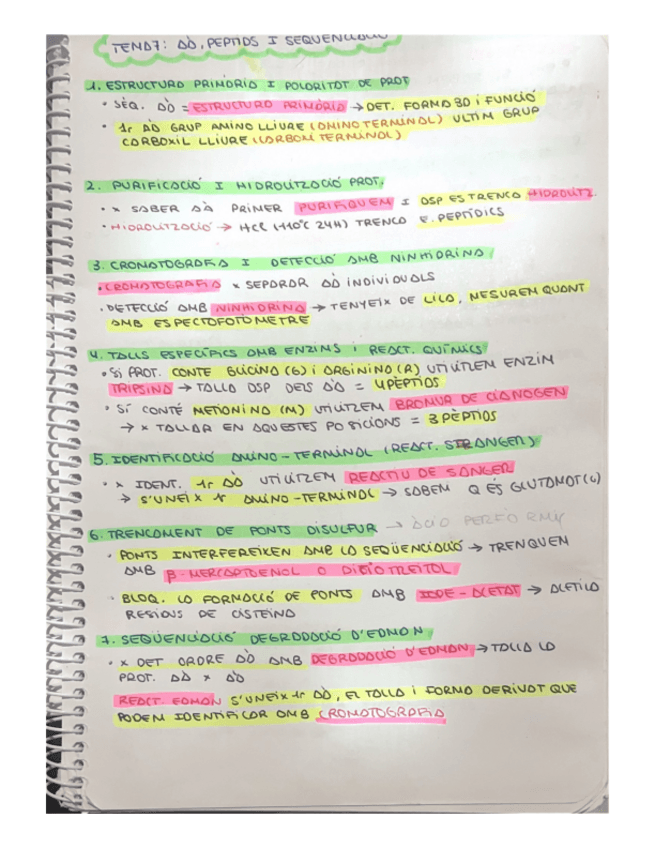 TEMA7: AA, PEPTIDS I SEQUENCIACIÓ
1. ESTRUCTURA PRIMARIA I POLARITAT DE PROT
• SEQ. AA = ESTRUCTURA PRIMARIA → DET. FORMA 3D I FUNCIÓ
• 1r AA GRUP AMINO LLIURE (AMINO TERMINAL) ULTIM GRUP
CARBOXIL LLIURE (CARBONI TERMINAL)
2. PURIFICACIÓ I HIDROLITZACIÓ PROT.
• x SABER AA PRIMER PURIFIQUEM I DSP ES TRENCA HIDROLITZ.
• HIDROLITZACIÓ → HCl (110°C 24H) TRENCA E. PEPTÍDICS
3. CROMATOGRAFIA I DETECCIÓ AMB NINHIDRINA
• CROMATOGRAFIA x SEPARAR AA INDIVIDUALS
• DETECCIÓ AMB NINHIDRINA → TENYEIX DE LILA, MESUREM QUANT
AMB ESPECTOFOTOMETRE
4. TALLS ESPECÍFICS AMB ENZIMS I REACT. QUÍMICS
• Si PROT. CONTE GLICINA (G) i ARGININA (R) UTILITZEM ENZIM
TRIPSINA → TALLA DSP DELS AA = 4 PÈPTIDS
• Si CONTÉ METIONINA (M) UTILITZEM BROMUR DE CIANOGEN
→ x TALLAR EN AQUESTES POSICIONS = 3 PÈPTIDS
5. IDENTIFICACIÓ AMINO-TERMINAL (REACT. STRANGER)
• x IDENT. 1r AA UTILITZEM REACTIU DE SANGER
→ S'UNEIX 1r AMINO-TERMINAL → SABEM Q ÉS GLUTAMAT (G)
6. TRENCAMENT DE PONTS DISULFUR → ÀCID PERFÒRMIC
• PONTS INTERFEREIXEN AMB LA SEQÜENCIACIÓ → TRENQUEM
AMB β-MERCAPTOENOL O DITIOTREITOL
• BLOQ. LA FORMACIÓ DE PONTS AMB IODE-ACETAT → ACETILA
RESIDUS DE CISTEINA
7. SEQÜENCIACIÓ DEGRADACIÓ D'EDMAN
• x DET ORDRE AA AMB DEGRADACIÓ D'EDMAN → TALLA LA
PROT. AA x AA
REACT. EDMAN S'UNEIX 1r AA, EL TALLA i FORMA DERIVAT QUE
PODEM IDENTIFICAR AMB CROMATOGRAFIA